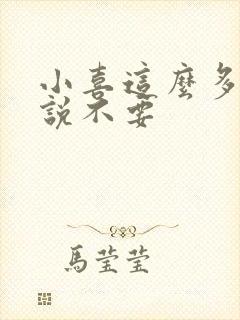 小喜這麼多
說不要
馬瑩瑩